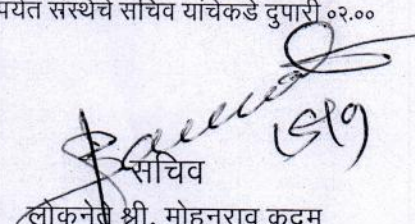 पर्यंत संस्थेचे सचिव यांचेकडे दुपारी ०२.००
सचिव
लोकनेते श्री. मोहनराव कदम